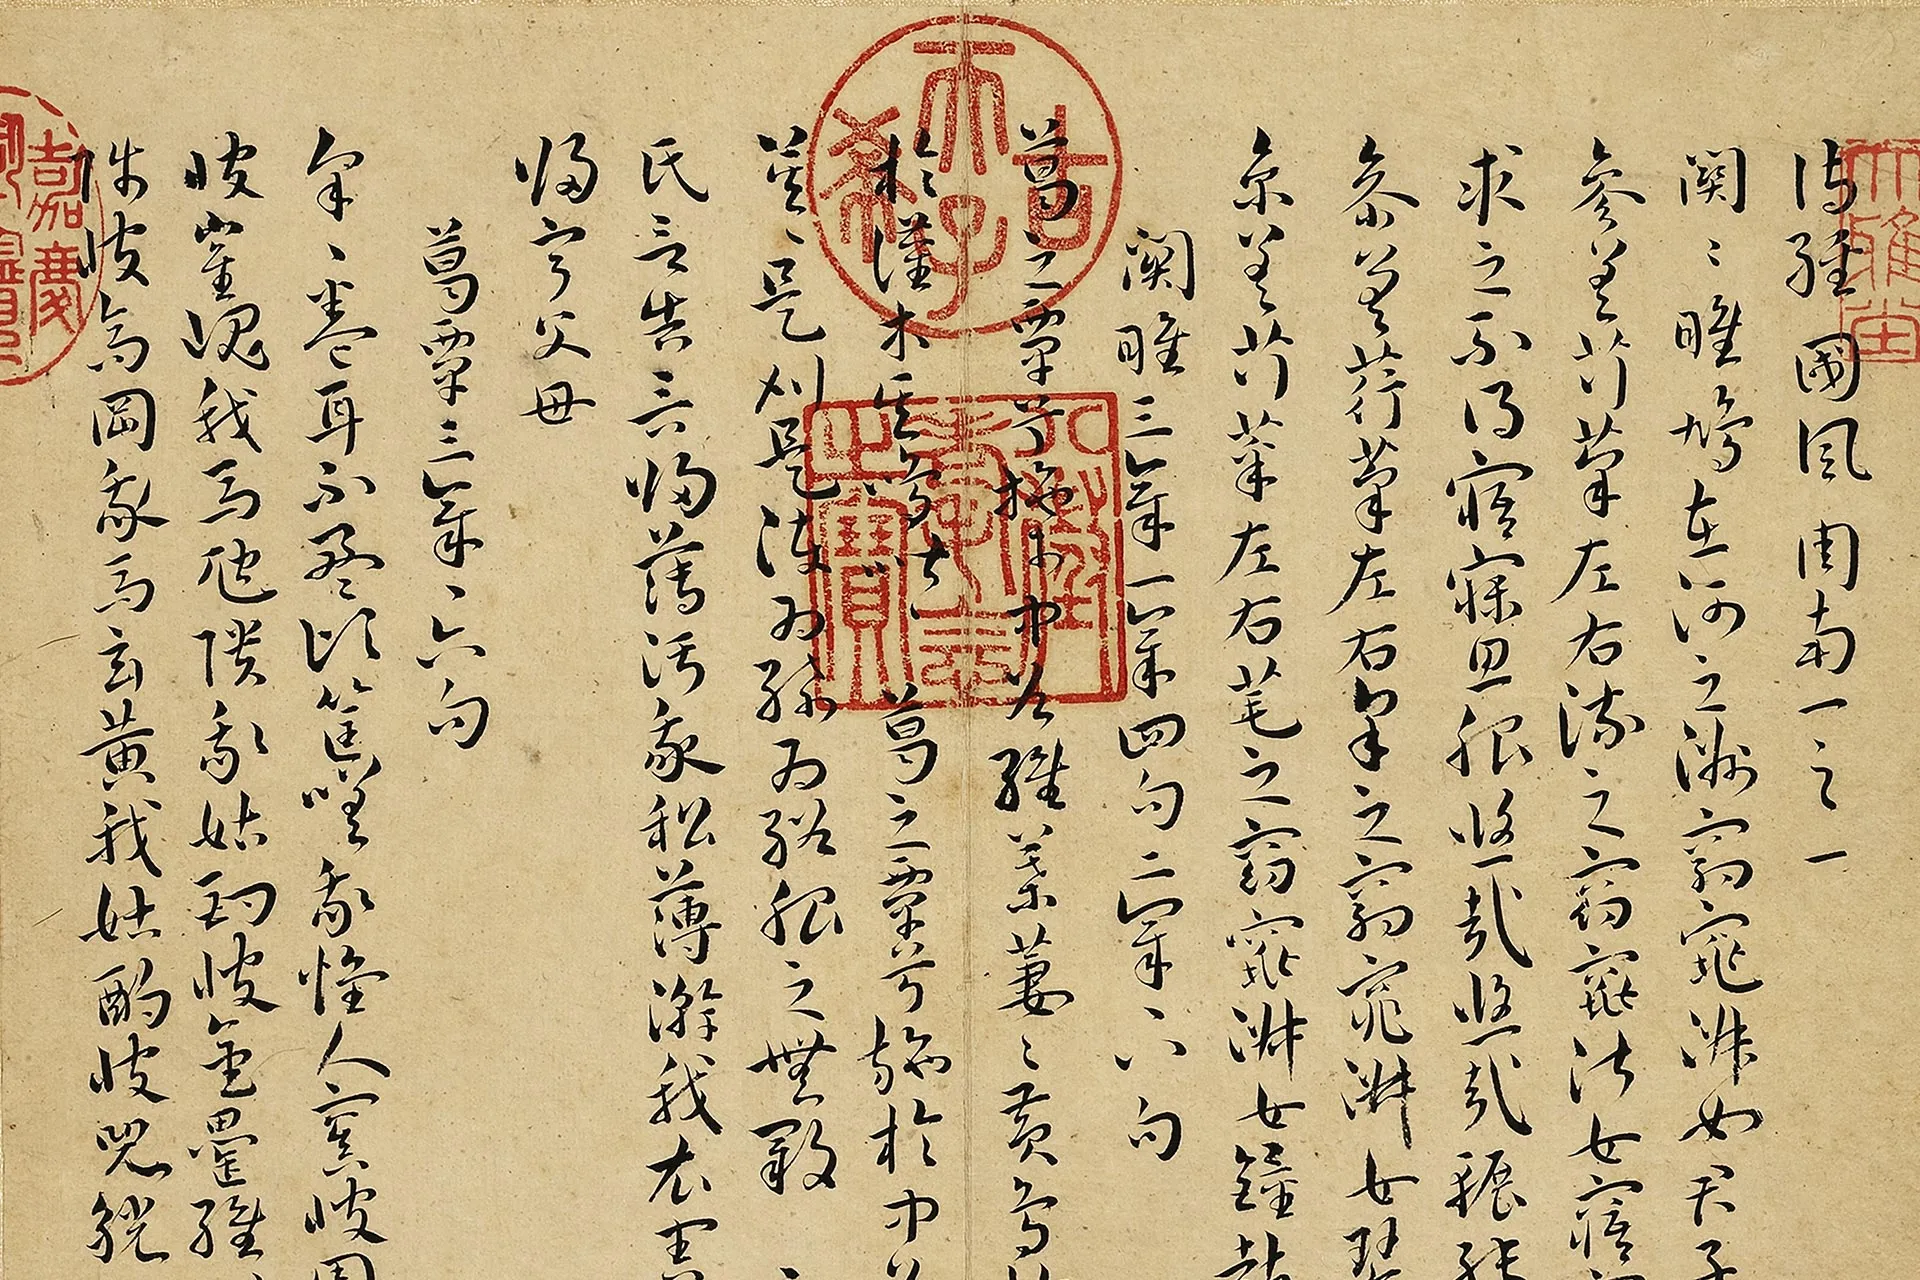 詩經國風周南一之一
關〻雎鳩在河之洲窈窕淑女君子
參差荇菜左右流之窈窕淑女寤
求之不得寤寐思服悠哉悠哉輾轉
參差荇菜左右采之窈窕淑女琴
參差荇菜左右芼之窈窕淑女鐘鼓
關雎三章一章四句二章〻八句
葛之覃兮施于中谷維葉萋〻黃鳥
於灌木其鳴喈〻 葛之覃兮施於中谷
莫〻是刈是濩為絺為綌服之無斁
氏言告言歸薄污我私薄澣我衣害
歸寧父母
葛覃三章〻六句
采〻卷耳不盈頃筐嗟我懷人寘彼周
彼崔嵬我馬虺隤我姑酌彼金罍維
陟彼高岡我馬玄黃我姑酌彼兕觥
古希天子
八徵耄念之寶
嘉慶